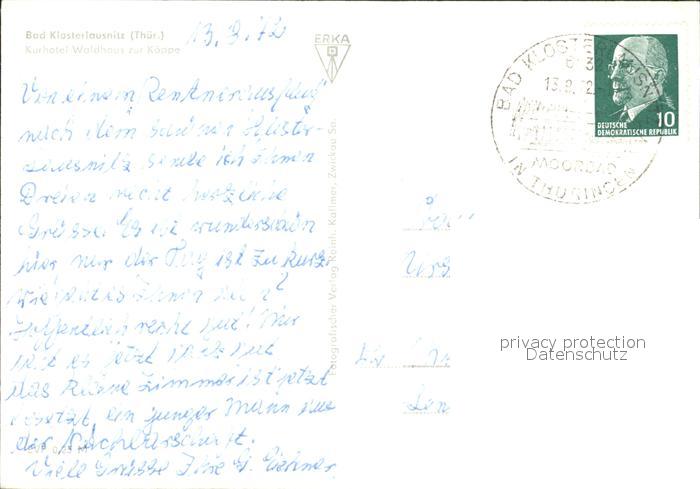 Bad Klosterlausnitz (Thür.)
Kurhotel Waldhaus zur Köppe
13.9.72
ERKA
BAD KLOSTERLAUSN
13.9.72
MOORBAD
IN THÜRINGEN
10
DEUTSCHE
DEMOKRATISCHE REPUBLIK
Von einem Rentnerausflug
nach dem schönen Kloster-
lausnitz sende ich Ihnen
Dreien recht herzliche
Grüsse. Es ist wunderschön
hier nur der Tag ist zu kurz.
wie geht es Ihnen
hoffentlich recht gut! Mir
geht es jetzt auch gut
das kleine Zimmer ist jetzt
besetzt, ein junger Mann aus
der Nachbarschaft.
Viele Grüsse Ihre G.
Fotografischer Verlag Reinh. Kallmer, Zwickau Sa.
privacy protection
Datenschutz